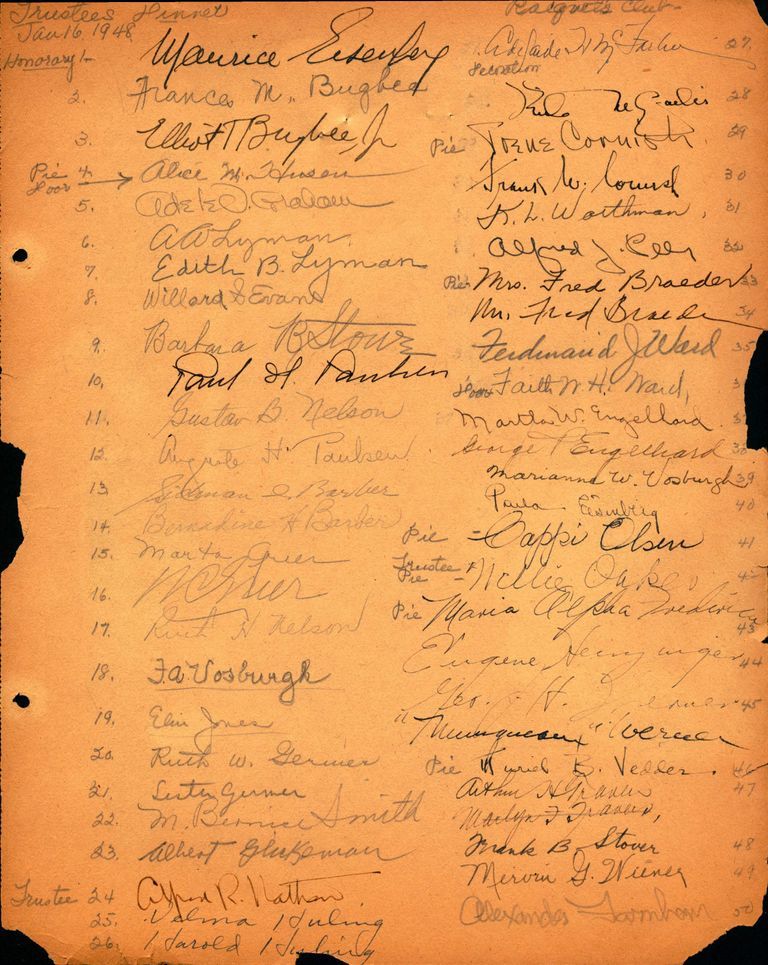 Trustees Dinner
Jan 16, 1948
Honorary 1- Maurice Eisenberg
2. Frances M. Bugbee
3. Elliott T Bugbee, Jr
Pie
4. Alice M.
5. Adele D. Graham
6. A A Lyman
7. Edith B. Lyman
8. Willard S Evans
9. Barbara B Stowe
10. Paul H. Paulsen
11. Gustav B. Nelson
12. Auguste H. Paulsen
13. Barber
14. Bernadine H Barber
15. Marta Grier
16.
17. Ruth H Nelson
18. F.A. Vosburgh
19. Jones
20. Ruth W. Germer
21. Lester Germer
22. M. Bernice Smith
23. Albert
Trustee 24 Alfred R. Nathan
25. Velma Huling
26. Harold Huling
Racquets Club
Adelaide N 27
28
Pie Irene Cornish 29
Frank W. Cornish 30
K. L. Worthman, 31
Alfred J. 32
Pie Mrs. Fred Braeder 33
Mr. Fred Braeder 34
Ferdinand J Ward 35
Faith W. H. Ward,
Martha W. Engelhard 37
George P Engelhard 38
Marianna W. Vosburgh 39
Paula Eisenberg 40
Pie - Cappi Olsen 41
Trustee +
Pie - Nellie 42
Pie Maria Alpha 43
Eugene 44
Geo. H. 45
Werner
Pie Muriel B. Vedder. 46
Arthur H Travers 47
Marlyn F Travers,
Frank B. Stover 48
Mervin G. Wiener 49
Alexander 50